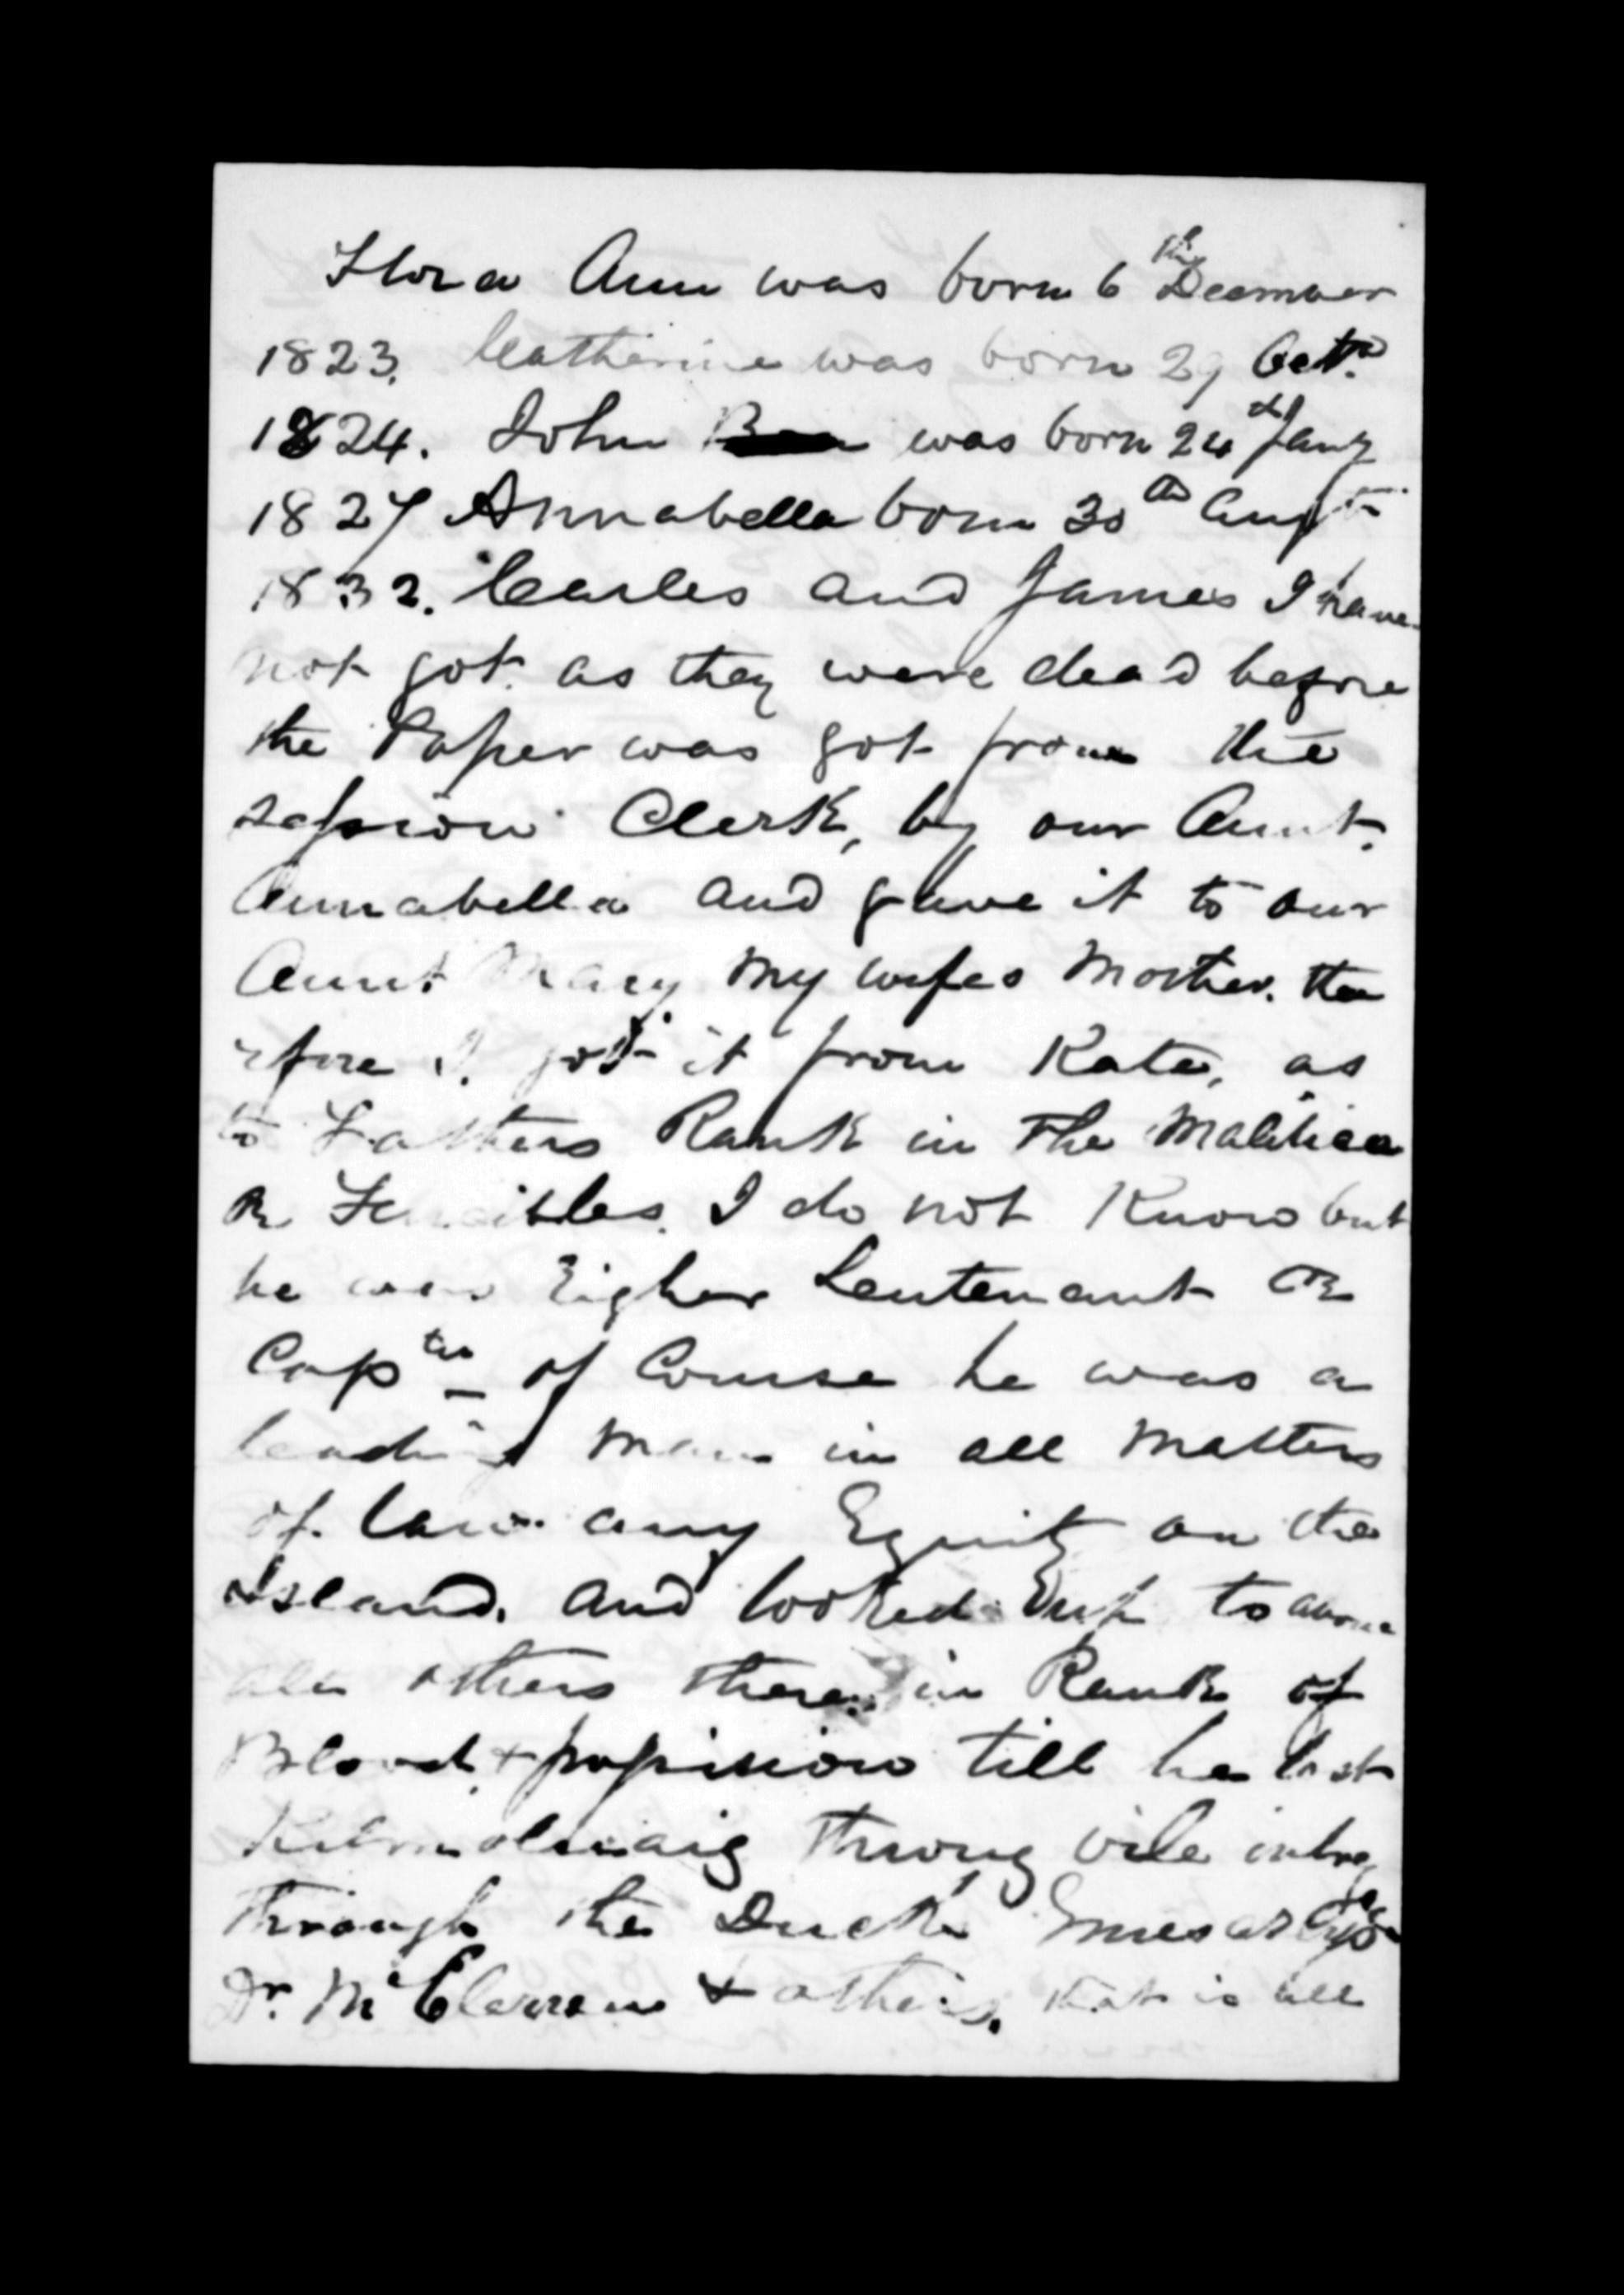 Flora Ann was born 6th Deember
1823. Catherine was born 29 Octr.
1824. John was born 24th Jany
1827 Annabella born 30th Augt
1832. Carles and James I have
not got as they were dead before
the Paper was got from the
session Clerk, by our Aunt
Annabella and gave it to our
Aunt Mary My wifes Mother. the
refore I got it from Kate, as
to Fathers Rank in The Malitiea
or Fencibles. I do not Know but
he was Eigher Leutenant OR
Captn of Course he was a
leading Man in all Matters
of law any Equity on the
Island. and looked up to above
all others there in Rank of
Blood & till he lost
Kilmoluaig throug vile
through the Ducke
Dr. Mc & others. that is all